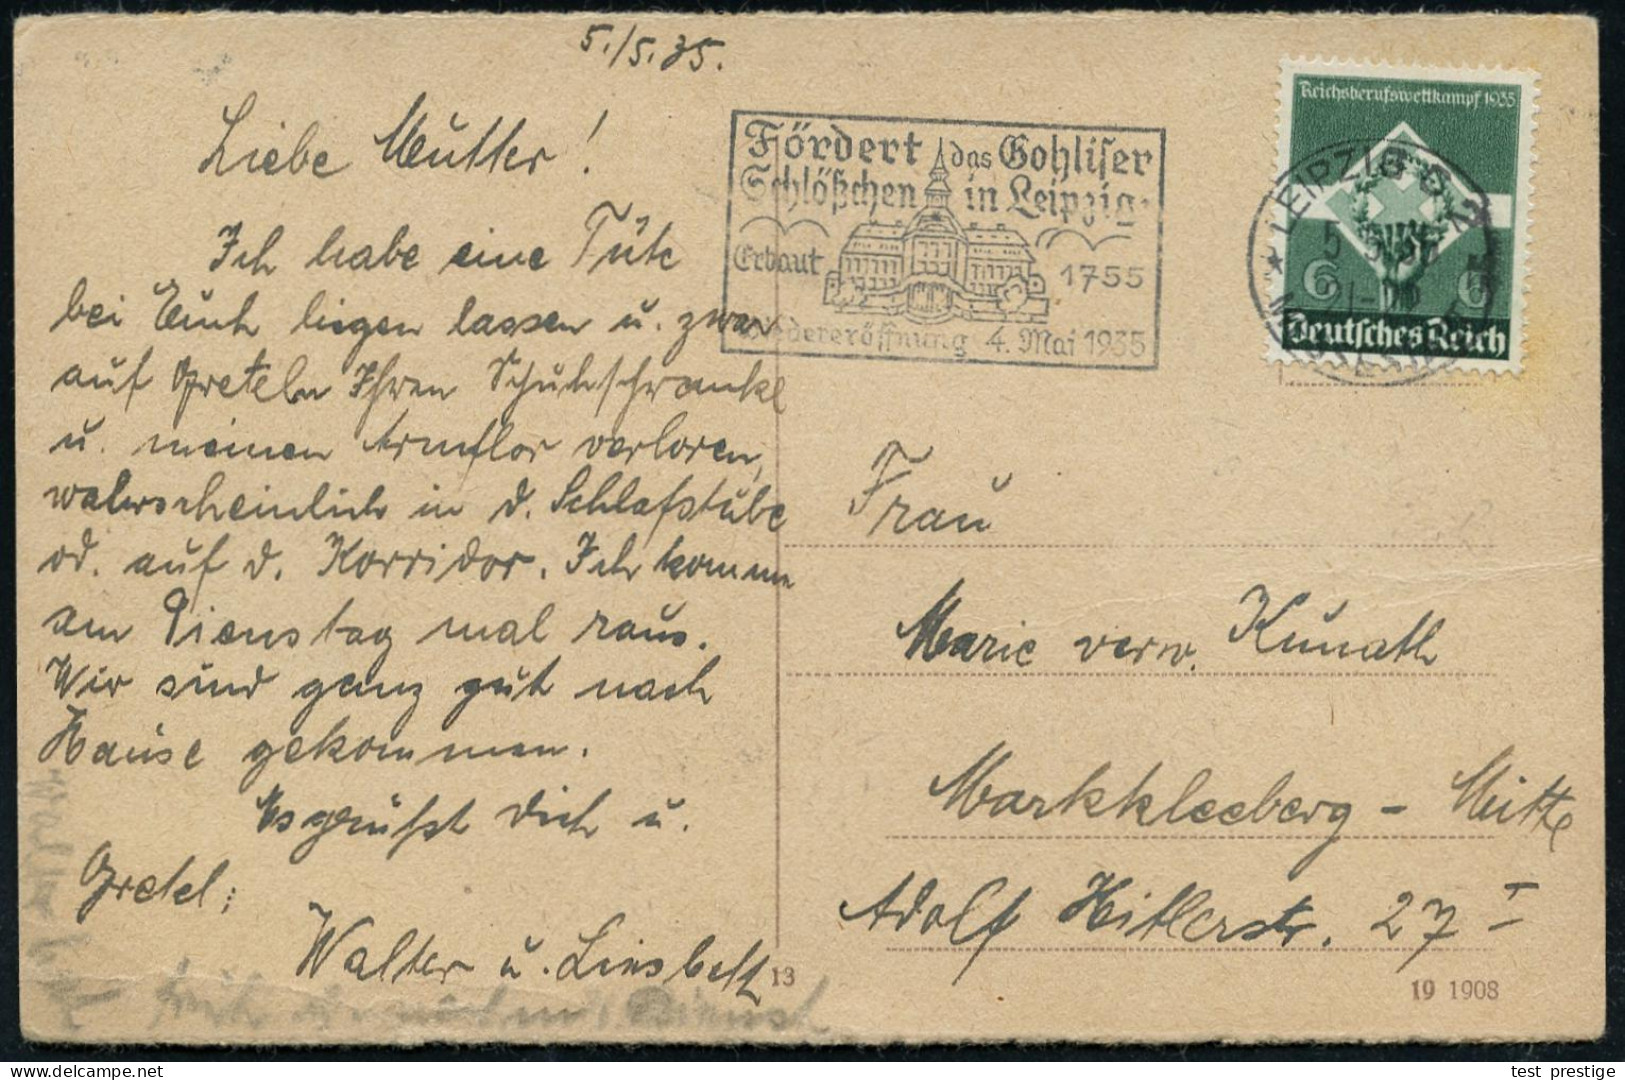 5./5.35.
Liebe Mutter!
Ich habe eine Tüte
bei Euch liegen lassen u. zwar
auf Greteln Ihren Schuhschrankl
u. meinen Armflor verloren,
wahrscheinlich in d. Schlafstube
od. auf d. Korridor. Ich komme
am Dienstag mal raus.
Wir sind ganz gut nach
Hause gekommen.
Es grüßt Dich u.
Gretel;
Walter u. Liesbeth
Fördert das Gohliser
Schlößchen in Leipzig
Erbaut 1755
Wiedereröffnung 4. Mai 1935
Reichsberufswettkampf 1935
LEIPZIG C 2
5.5.35
6 6
Deutsches Reich
Frau
Marie verw. Kunath
Markkleeberg - Mitte
Adolf Hitlerstr. 27 I
13
19 1908
delcampe.net
test_prestige